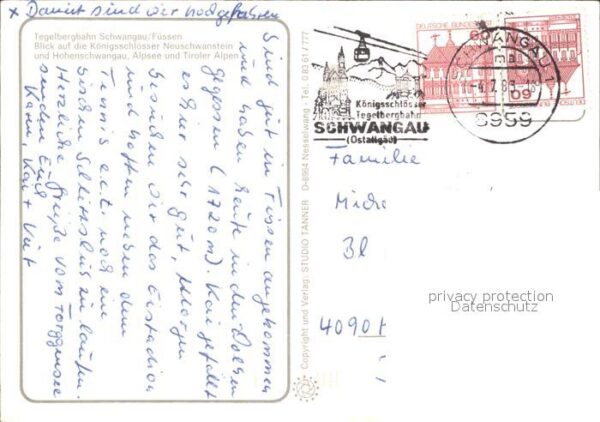 x Damit sind wir hochgefahren
Tegelbergbahn Schwangau/Füssen
Blick auf die Königsschlösser Neuschwanstein
und Hohenschwangau, Alpsee und Tiroler Alpen
Sind gut in Füssen angekommen
und haben heute in den Wolken
gegessen (1720 m). Kai gefällt
es hier sehr gut, Morgen
besuchen wir das Eisstadion
und hoffen neben dem
Tennis e.t.c. noch ein
bischen Schlittschuh zu laufen.
Herzliche Grüße vom Forggensee
senden Euch
Karin, Kai + Veit
Copyright und Verlag: STUDIO TANNER D-8964 Nesselwang · Tel. 0 83 61 / 777
Königsschlösser
Tegelbergbahn
SCHWANGAU
(Ostallgäu)
DEUTSCHE BUNDES
60
SCHWANGAU 1
8959
Familie
Miche
Bl
4090
privacy protection
Datenschutz